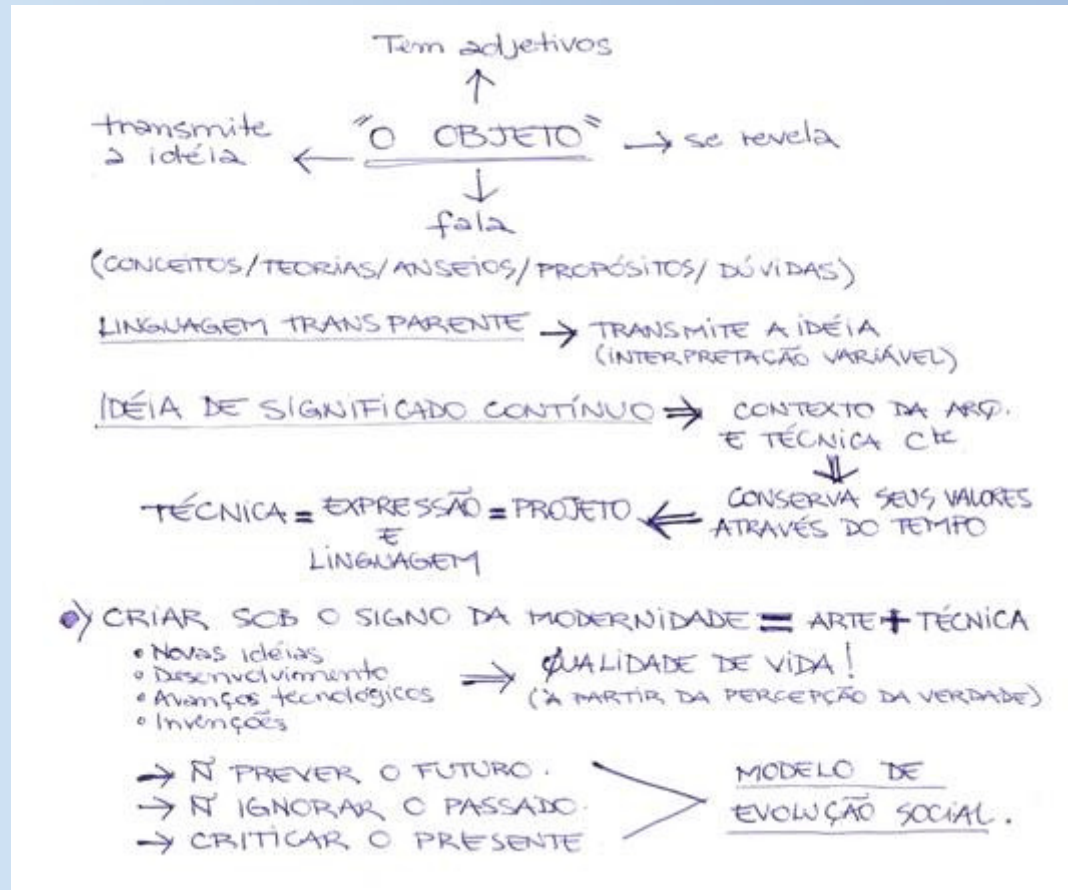 Tem adjetivos
transmite
a idéia ← "O OBJETO" → se revela
fala
(CONCEITOS/TEORIAS/ANSEIOS/PROPÓSITOS/DÚVIDAS)
LINGUAGEM TRANSPARENTE → TRANSMITE A IDÉIA
(INTERPRETAÇÃO VARIÁVEL)
IDÉIA DE SIGNIFICADO CONTÍNUO ⇒ CONTEXTO DA ARQ.
E TÉCNICA etc
CONSERVA SEUS VALORES
ATRAVÉS DO TEMPO
TÉCNICA = EXPRESSÃO = PROJETO
E
LINGUAGEM
CRIAR SOB O SIGNO DA MODERNIDADE = ARTE + TÉCNICA
• Novas idéias
• Desenvolviemento
• Avanços tecnológicos
• Invenções
⇒ QUALIDADE DE VIDA!
(À PARTIR DA PERCEPÇÃO DA VERDADE)
→ Ñ PREVER O FUTURO.
→ Ñ IGNORAR O PASSADO.
→ CRITICAR O PRESENTE
MODELO DE
EVOLUÇÃO SOCIAL.